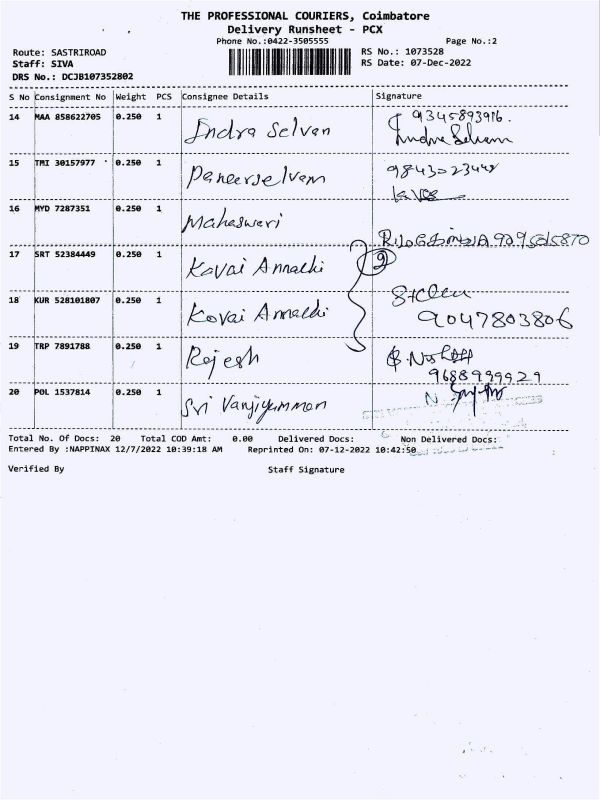 THE PROFESSIONAL COURIERS, Coimbatore
Delivery Runsheet - PCX
Phone No.:0422-3505555 Page No.:2
Route: SASTRIROAD RS No.: 1073528
Staff: SIVA RS Date: 07-Dec-2022
DRS No.: DCJB107352802
S No Consignment No Weight PCS Consignee Details Signature
14 MAA 858622705 0.250 1 Indra Selvan 9345893916.
15 TMI 30157977 0.250 1 Paneerselvam
16 MYD 7287351 0.250 1 Mahaswari
17 SRT 52384449 0.250 1 Kovai Annachi 2
18 KUR 528101807 0.250 1 Kovai Annachi
9047803806
19 TRP 7891788 0.250 1 Rajesh
9688999929
20 POL 1537814 0.250 1 Sri Vanjiyamman N.
Total No. Of Docs: 20 Total COD Amt: 0.00 Delivered Docs: Non Delivered Docs:
Entered By :NAPPINAX 12/7/2022 10:39:18 AM Reprinted On: 07-12-2022 10:42:50
Verified By Staff Signature